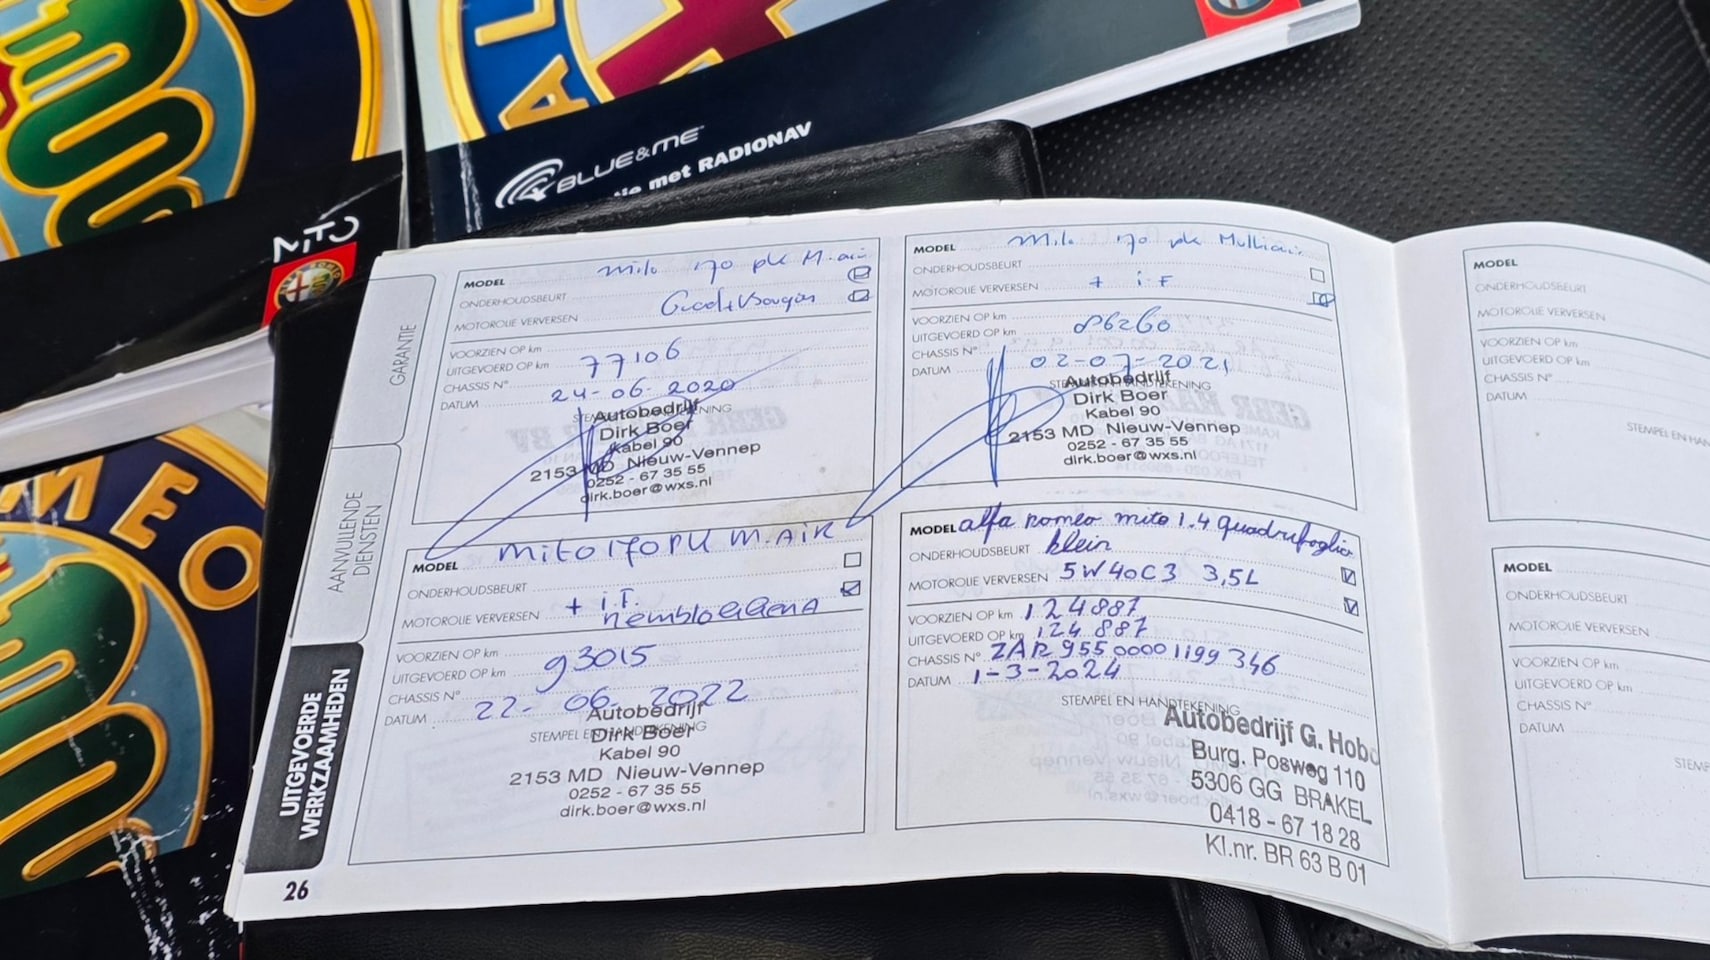 MEO
MiTO
AL
BLUE&ME™
met RADIONAV
GARANTIE
AANVULLENDE
DIENSTEN
UITGEVOERDE
WERKZAAMHEDEN
MODEL mito 170 pk M.air
ONDERHOUDSBEURT
MOTOROLIE VERVERSEN
VOORZIEN OP km
UITGEVOERD OP km 77106
CHASSIS N°
DATUM 24-06-2020
STEMPEL EN HANDTEKENING
Autobedrijf
Dirk Boer
Kabel 90
2153 MD Nieuw-Vennep
0252 - 67 35 55
dirk.boer@wxs.nl
MODEL Mito 170 pk Multiair
ONDERHOUDSBEURT
MOTOROLIE VERVERSEN + i.F
VOORZIEN OP km
UITGEVOERD OP km 86260
CHASSIS N°
DATUM 02-07-2021
STEMPEL EN HANDTEKENING
Autobedrijf
Dirk Boer
Kabel 90
2153 MD Nieuw-Vennep
0252 - 67 35 55
dirk.boer@wxs.nl
MODEL Mito 170PK M.AiR
ONDERHOUDSBEURT
MOTOROLIE VERVERSEN + i.F.
VOORZIEN OP km
UITGEVOERD OP km 93015
CHASSIS N°
DATUM 22-06-2022
STEMPEL EN HANDTEKENING
Autobedrijf
Dirk Boer
Kabel 90
2153 MD Nieuw-Vennep
0252 - 67 35 55
dirk.boer@wxs.nl
MODEL alfa romeo mito 1.4 quadrifoglio
ONDERHOUDSBEURT klein
MOTOROLIE VERVERSEN 5W40C3 3,5L
VOORZIEN OP km 124887
UITGEVOERD OP km 124887
CHASSIS N° ZAR95500001199346
DATUM 1-3-2024
STEMPEL EN HANDTEKENING
Autobedrijf G. Hobo
Burg. Posweg 110
5306 GG BRAKEL
0418 - 67 18 28
Kl.nr. BR 63 B 01
26
MODEL
ONDERHOUDSBEURT
MOTOROLIE VERVERSEN
VOORZIEN OP km
UITGEVOERD OP km
CHASSIS N°
DATUM
STEMPEL EN HAN
MODEL
ONDERHOUDSBEURT
MOTOROLIE VERVERSEN
VOORZIEN OP km
UITGEVOERD OP km
CHASSIS N°
DATUM
STEMP